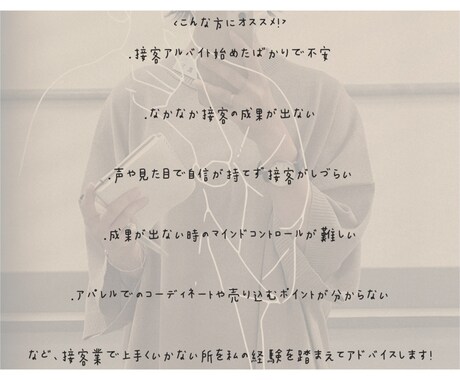 <こんな方にオススメ!>
.接客アルバイト始めたばかりで不安
.なかなか接客の成果が出ない
.声や見た目で自信が持てず接客がしづらい
.成果が出ない時のマインドコントロールが難しい
.アパレルでのコーディネートや売り込むポイントが分からない
など、接客業で上手くいかない所を私の経験を踏まえてアドバイスします!